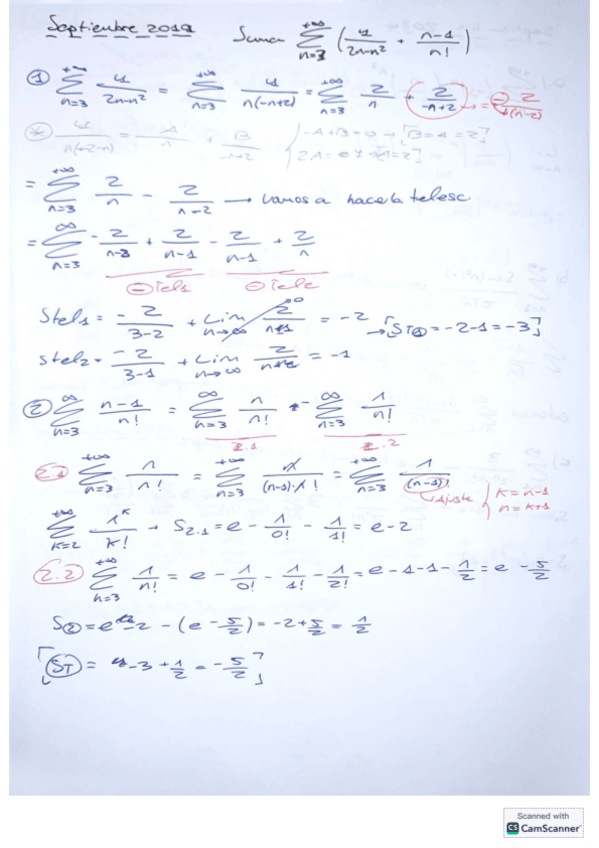 Septiembre 2019 Suma ∑_{n=3}^{+∞} (4/(2n-n²) + (n-1)/n!)
① ∑_{n=3}^{+∞} 4/(2n-n²) = ∑_{n=3}^{+∞} 4/(n(-n+2)) = ∑_{n=3}^{+∞} 2/n + 2/(-n+2) → = ⊖ 2/(+(n-2))
* 4/(n(+2-n)) = A/n + B/(-n+2) { -A+B=0 → [B=A=2]
2A=4 → A=2]
= ∑_{n=3}^{+∞} 2/n - 2/(n-2) → vamos a hacerla telesc.
= ∑_{n=3}^{∞} -2/(n-2) + 2/(n-1) - 2/(n-1) + 2/n
⊖Tels ⊖Tele
Stels1 = -2/(3-2) + Lim_{n→∞} 2/(n+1) 0 = -2 → [ST① = -2-1 = -3]
Stel2 = -2/(3-1) + Lim_{n→∞} = -1
② ∑_{n=3}^{∞} (n-1)/n! = ∑_{n=3}^{∞} n/n! - ∑_{n=3}^{∞} 1/n!
2.1 2.2
2.1 ∑_{n=3}^{+∞} n/n! = ∑_{n=3}^{+∞} n/((n-1)·n!) = ∑_{n=3}^{+∞} 1/(n-1)! → Ajuste { k=n-1
n=k+1
∑_{k=2}^{+∞} 1^k/k! → S2.1 = e - 1/0! - 1/1! = e-2
2.2 ∑_{n=3}^{+∞} 1/n! = e - 1/0! - 1/1! - 1/2! = e-1-1-1/2 = e - 5/2
S② = e-2 - (e - 5/2) = -2+5/2 = 1/2
[ST = -3 + 1/2 = -5/2]
Scanned with
CS CamScanner